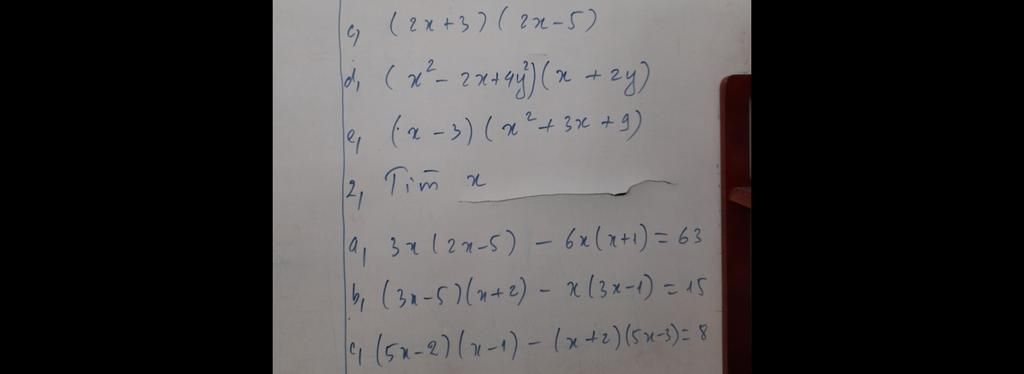 c, (2x+3)(2x-5)
d, (x² - 2x+4y²)(x + 2y)
e, (x - 3)(x² + 3x + 9)
2, Tìm x
a, 3x(2x-5) - 6x(x+1) = 63
b, (3x-5)(x+2) - x(3x-1) = 15
c, (5x-2)(x-1) - (x+2)(5x-3) = 8